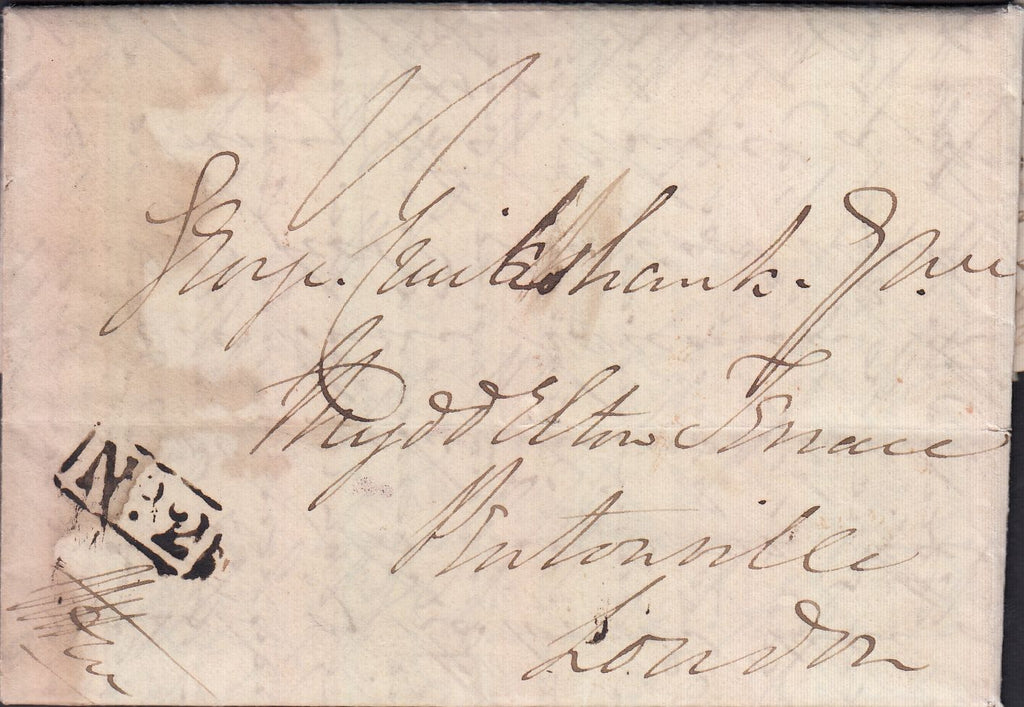 George. Cruikshank. Esqre.
Myddelton Terrace
Pentonville
London
No. 2